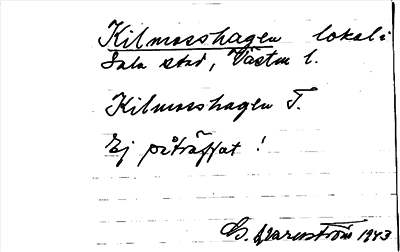 Kilmosshagen lokal i
Sala stad, Västm l.
Kilmosshagen T.
Ej påträffat !
G. Warnström 1943